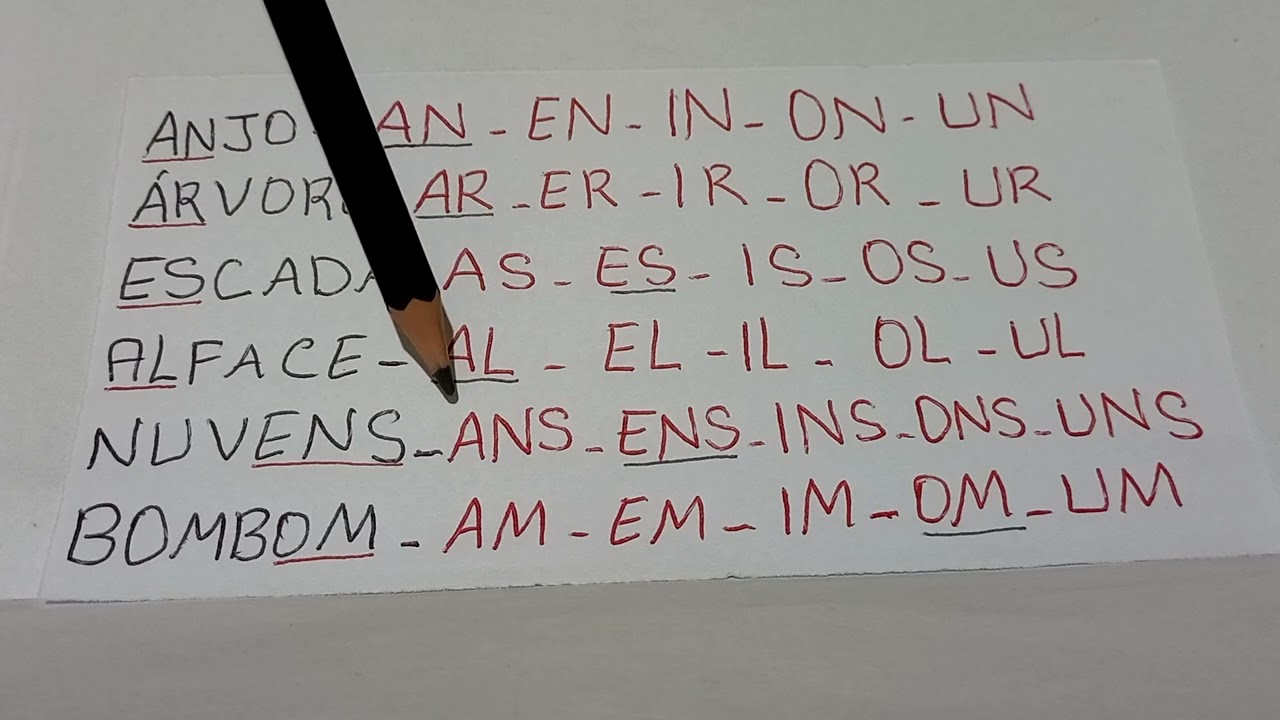 ANJO - AN - EN - IN - ON - UN
ÁRVOR AR - ER - IR - OR - UR
ESCADA AS - ES - IS - OS - US
ALFACE - AL - EL - IL - OL - UL
NUVENS - ANS - ENS - INS - ONS - UNS
BOMBOM - AM - EM - IM - OM - UM